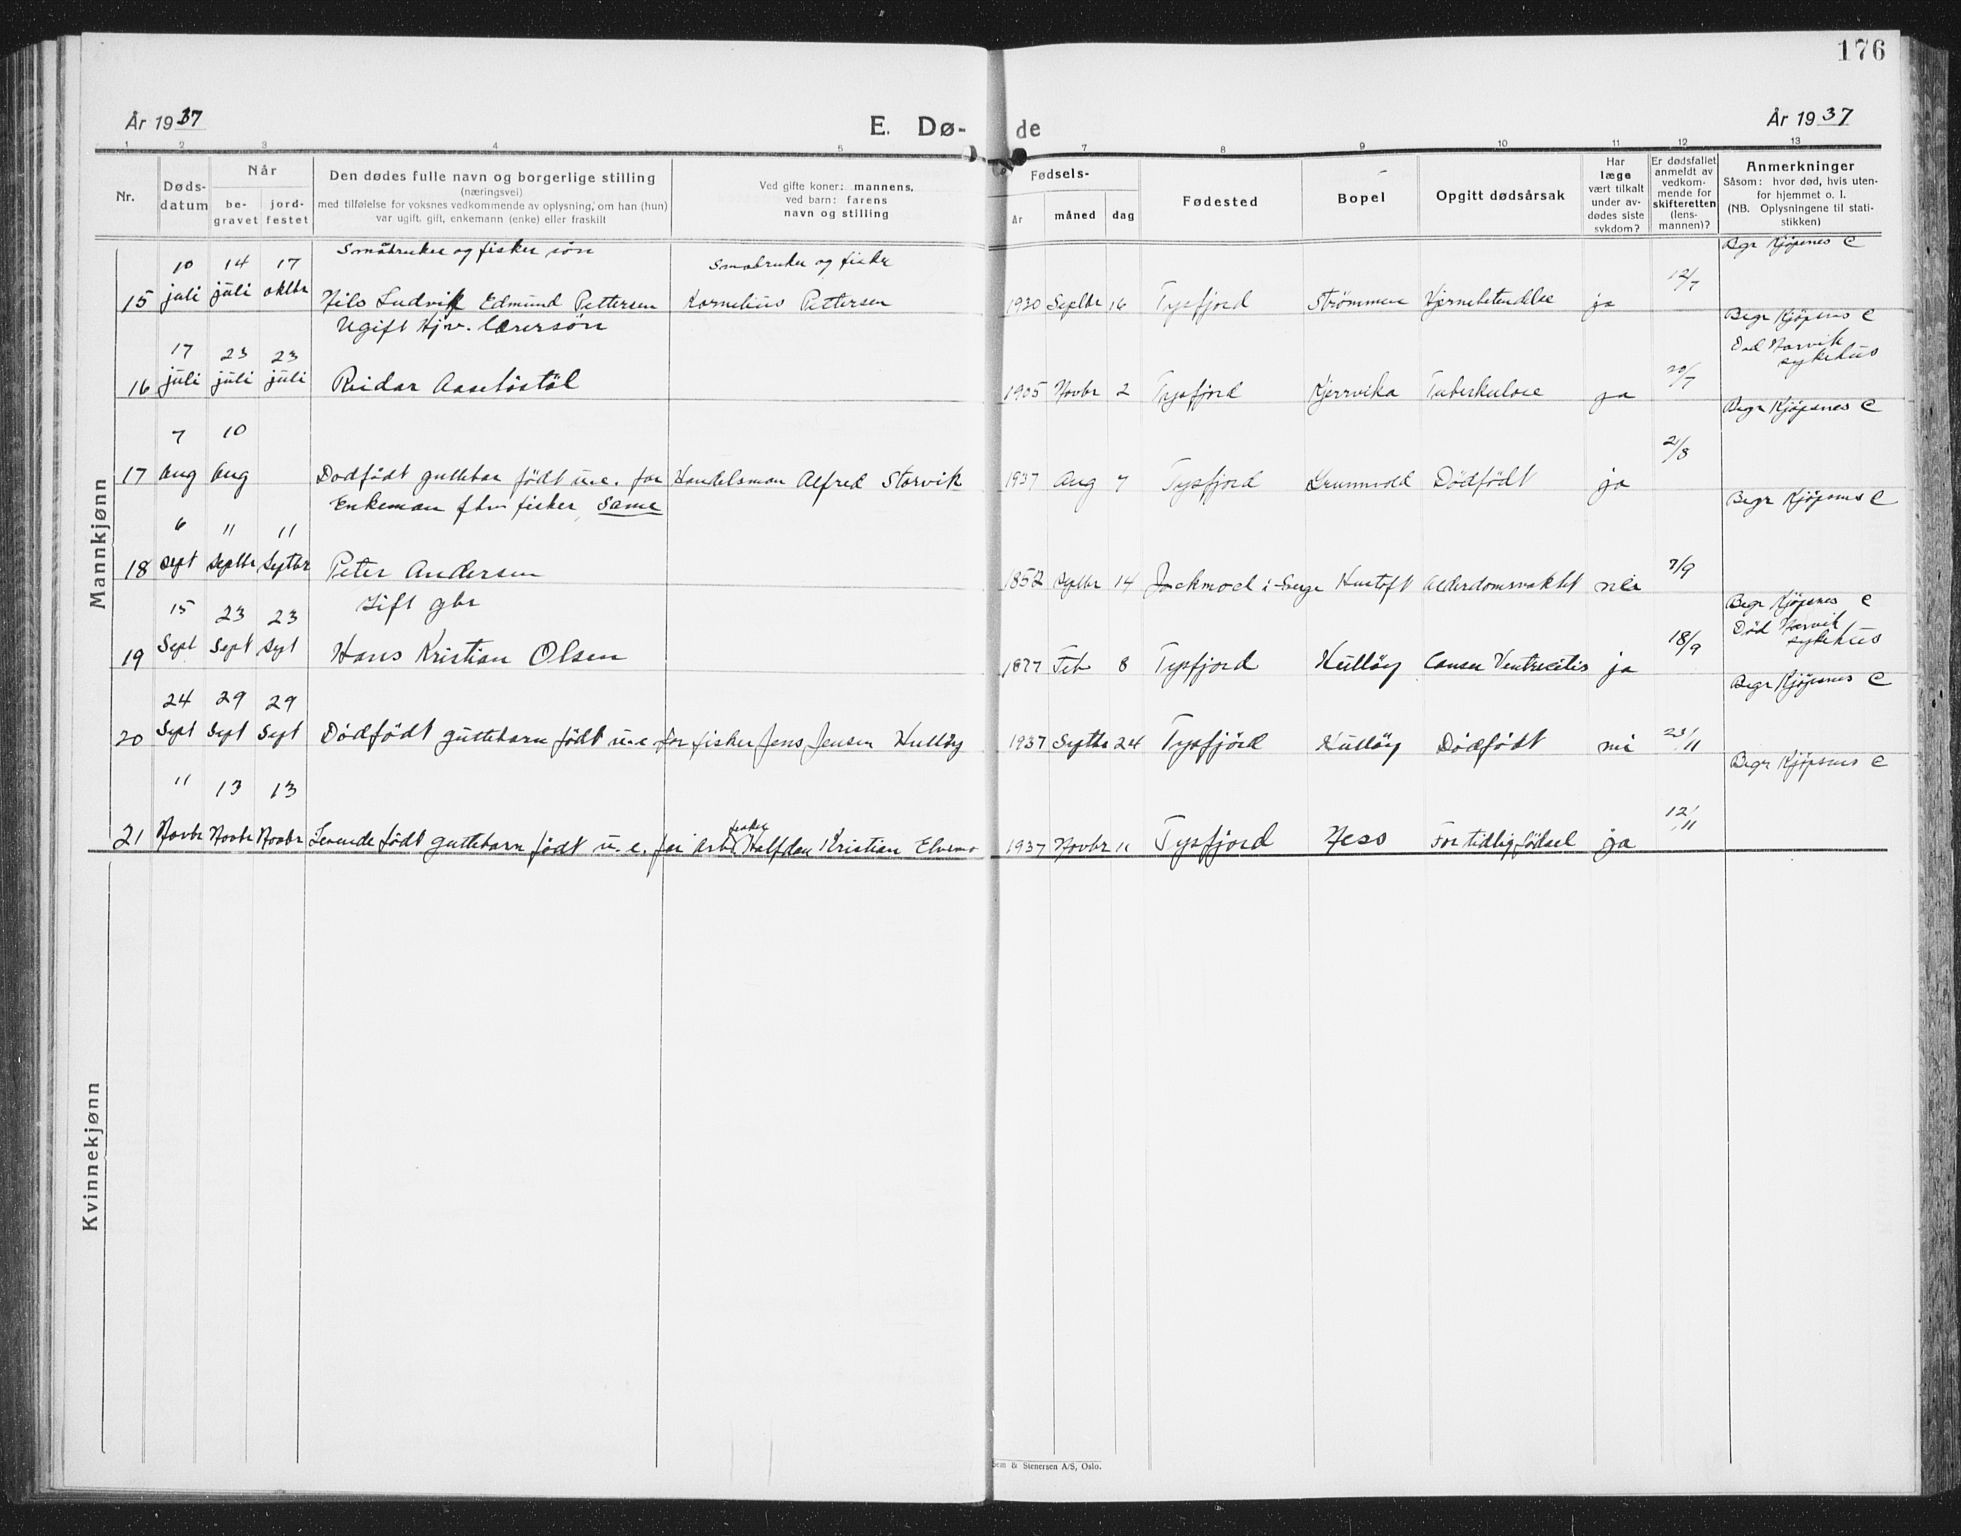 176
År 1937
E. Dø-
de
År 1937
1 2 3 4 5 7 8 9 10 11 12 13
Nr.
Døds-
datum
Når
be-
gravet
jord-
festet
Den dødes fulle navn og borgerlige stilling
(næringsvei)
med tilføielse for voksnes vedkommende av oplysning, om han (hun)
var ugift, gift, enkemann (enke) eller fraskilt
Ved gifte koner: mannens,
ved barn: farens
navn og stilling
Fødsels-
år måned dag
Fødested
Bopel
Opgitt dødsårsak
Har
læge
vært tilkalt
under av-
dødes siste
sykdom?
Er dødsfallet
anmeldt av
vedkom-
mende for
skifteretten
(lens-
mannen)?
Anmerkninger
Såsom: hvor død, hvis uten-
for hjemmet o. l.
(NB. Oplysningene til stati-
stikken)
Mannkjønn
Småbruker og fisker søn Småbruker og fisker Begr Kjöpsnes C
10 14 17 12/7
15 juli juli oktbr Nils Ludvik Edmund Pettersen Kornelius Pettersen 1930 Septbr 16 Tysfjord Strömmen Hjernebetendelse ja
Ugift Hjv. Lærersøn Begr Kjöpsnes C
17 23 23 Död Narvik sykehus
16 juli juli juli Reidar Aasebøstøl 1905 Novbr 2 Tysfjord Kjerrvika Tuberkulose ja 20/7
Begr Kjöpsnes C
7 10 21/8
17 Aug Aug Dødfödt guttebar födt u.e. for Handelsman Alfred Storvik 1937 Aug 7 Tysfjord Dödfödt ja
Enkeman fhv fisker, Same Begr Kjöpsnes C
6 11 11
18 Sept Septbr Septbr Peter Andersen 1852 Septbr 14 Jockmock i Sverge Hustoft Alderdomssvakhet nei 7/9
Gift gbr Begr Kjöpsnes C
15 23 23 Död Narvik sykehus
19 Sept Sept Sept Hans Kristian Olsen 1877 Feb 8 Tysfjord Hulløy Cancer ja 18/9
Begr Kjöpsnes C
24 29 29
20 Sept Sept Sept Dödfödt guttebarn födt u.e. for fisker Jens Jensen Hulløy 1937 Septbr 24 Tysfjörd Hulløy Dödfödt nei 23/11
Begr Kjöpsnes C
11 13 13 12/11
fisker
21 Novbr Novbr Novbr Levende födt guttebarn födt u. e. for arb Halfdan Kristian Elvemo 1937 Novbr 11 Tysfjord Ness For tidlig födsel ja
Kvinnekjønn
Sem & Stenersen A/S, Oslo.